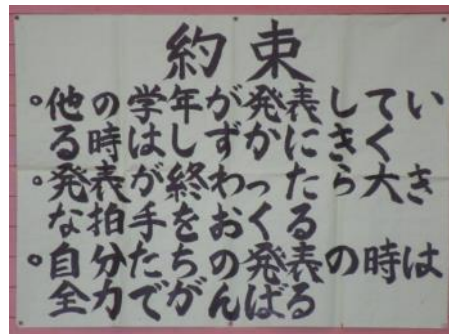 約束
。他の学年が発表してい
る時はしずかにきく
。発表が終わったら大き
な拍手をおくる
。自分たちの発表の時は
全力でがんばる